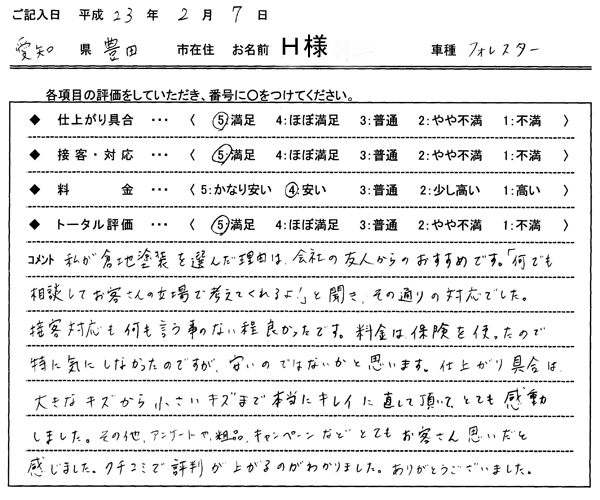 ご記入日 平成 23 年 2 月 7 日
愛知 県 豊田 市在住 お名前 H様 車種 フォレスター
各項目の評価をしていただき、番号に〇をつけてください。
◆ 仕上がり具合 ・・・ 〈 5:満足 4:ほぼ満足 3:普通 2:やや不満 1:不満 〉
◆ 接客・対応 ・・・ 〈 5:満足 4:ほぼ満足 3:普通 2:やや不満 1:不満 〉
◆ 料金 ・・・ 〈 5:かなり安い 4:安い 3:普通 2:少し高い 1:高い 〉
◆ トータル評価 ・・・ 〈 5:満足 4:ほぼ満足 3:普通 2:やや不満 1:不満 〉
コメント 私が倉地塗装を選んだ理由は、会社の友人からのおすすめです。「何でも
相談してお客さんの立場で考えてくれるよ!」と聞き、その通りの対応でした。
接客対応も何も言う事のない程良かったです。料金は保険を使ったので
特に気にしなかったのですが、安いのではないかと思います。仕上がり具合は、
大きなキズから小さいキズまで本当にキレイに直して頂いて、とても感動
しました。その他、アンケートや、粗品、キャンペーンなどとてもお客さん思いだと
感じました。クチコミで評判が上がるのがわかりました。ありがとうございました。